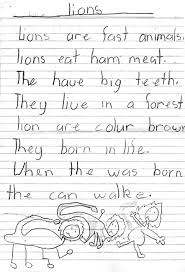 lions
Lions are fast animals.
lions eat ham meat.
The have big teeth.
They live in a forest
lion are colur brown
They born in life.
When the was born
the can walke.